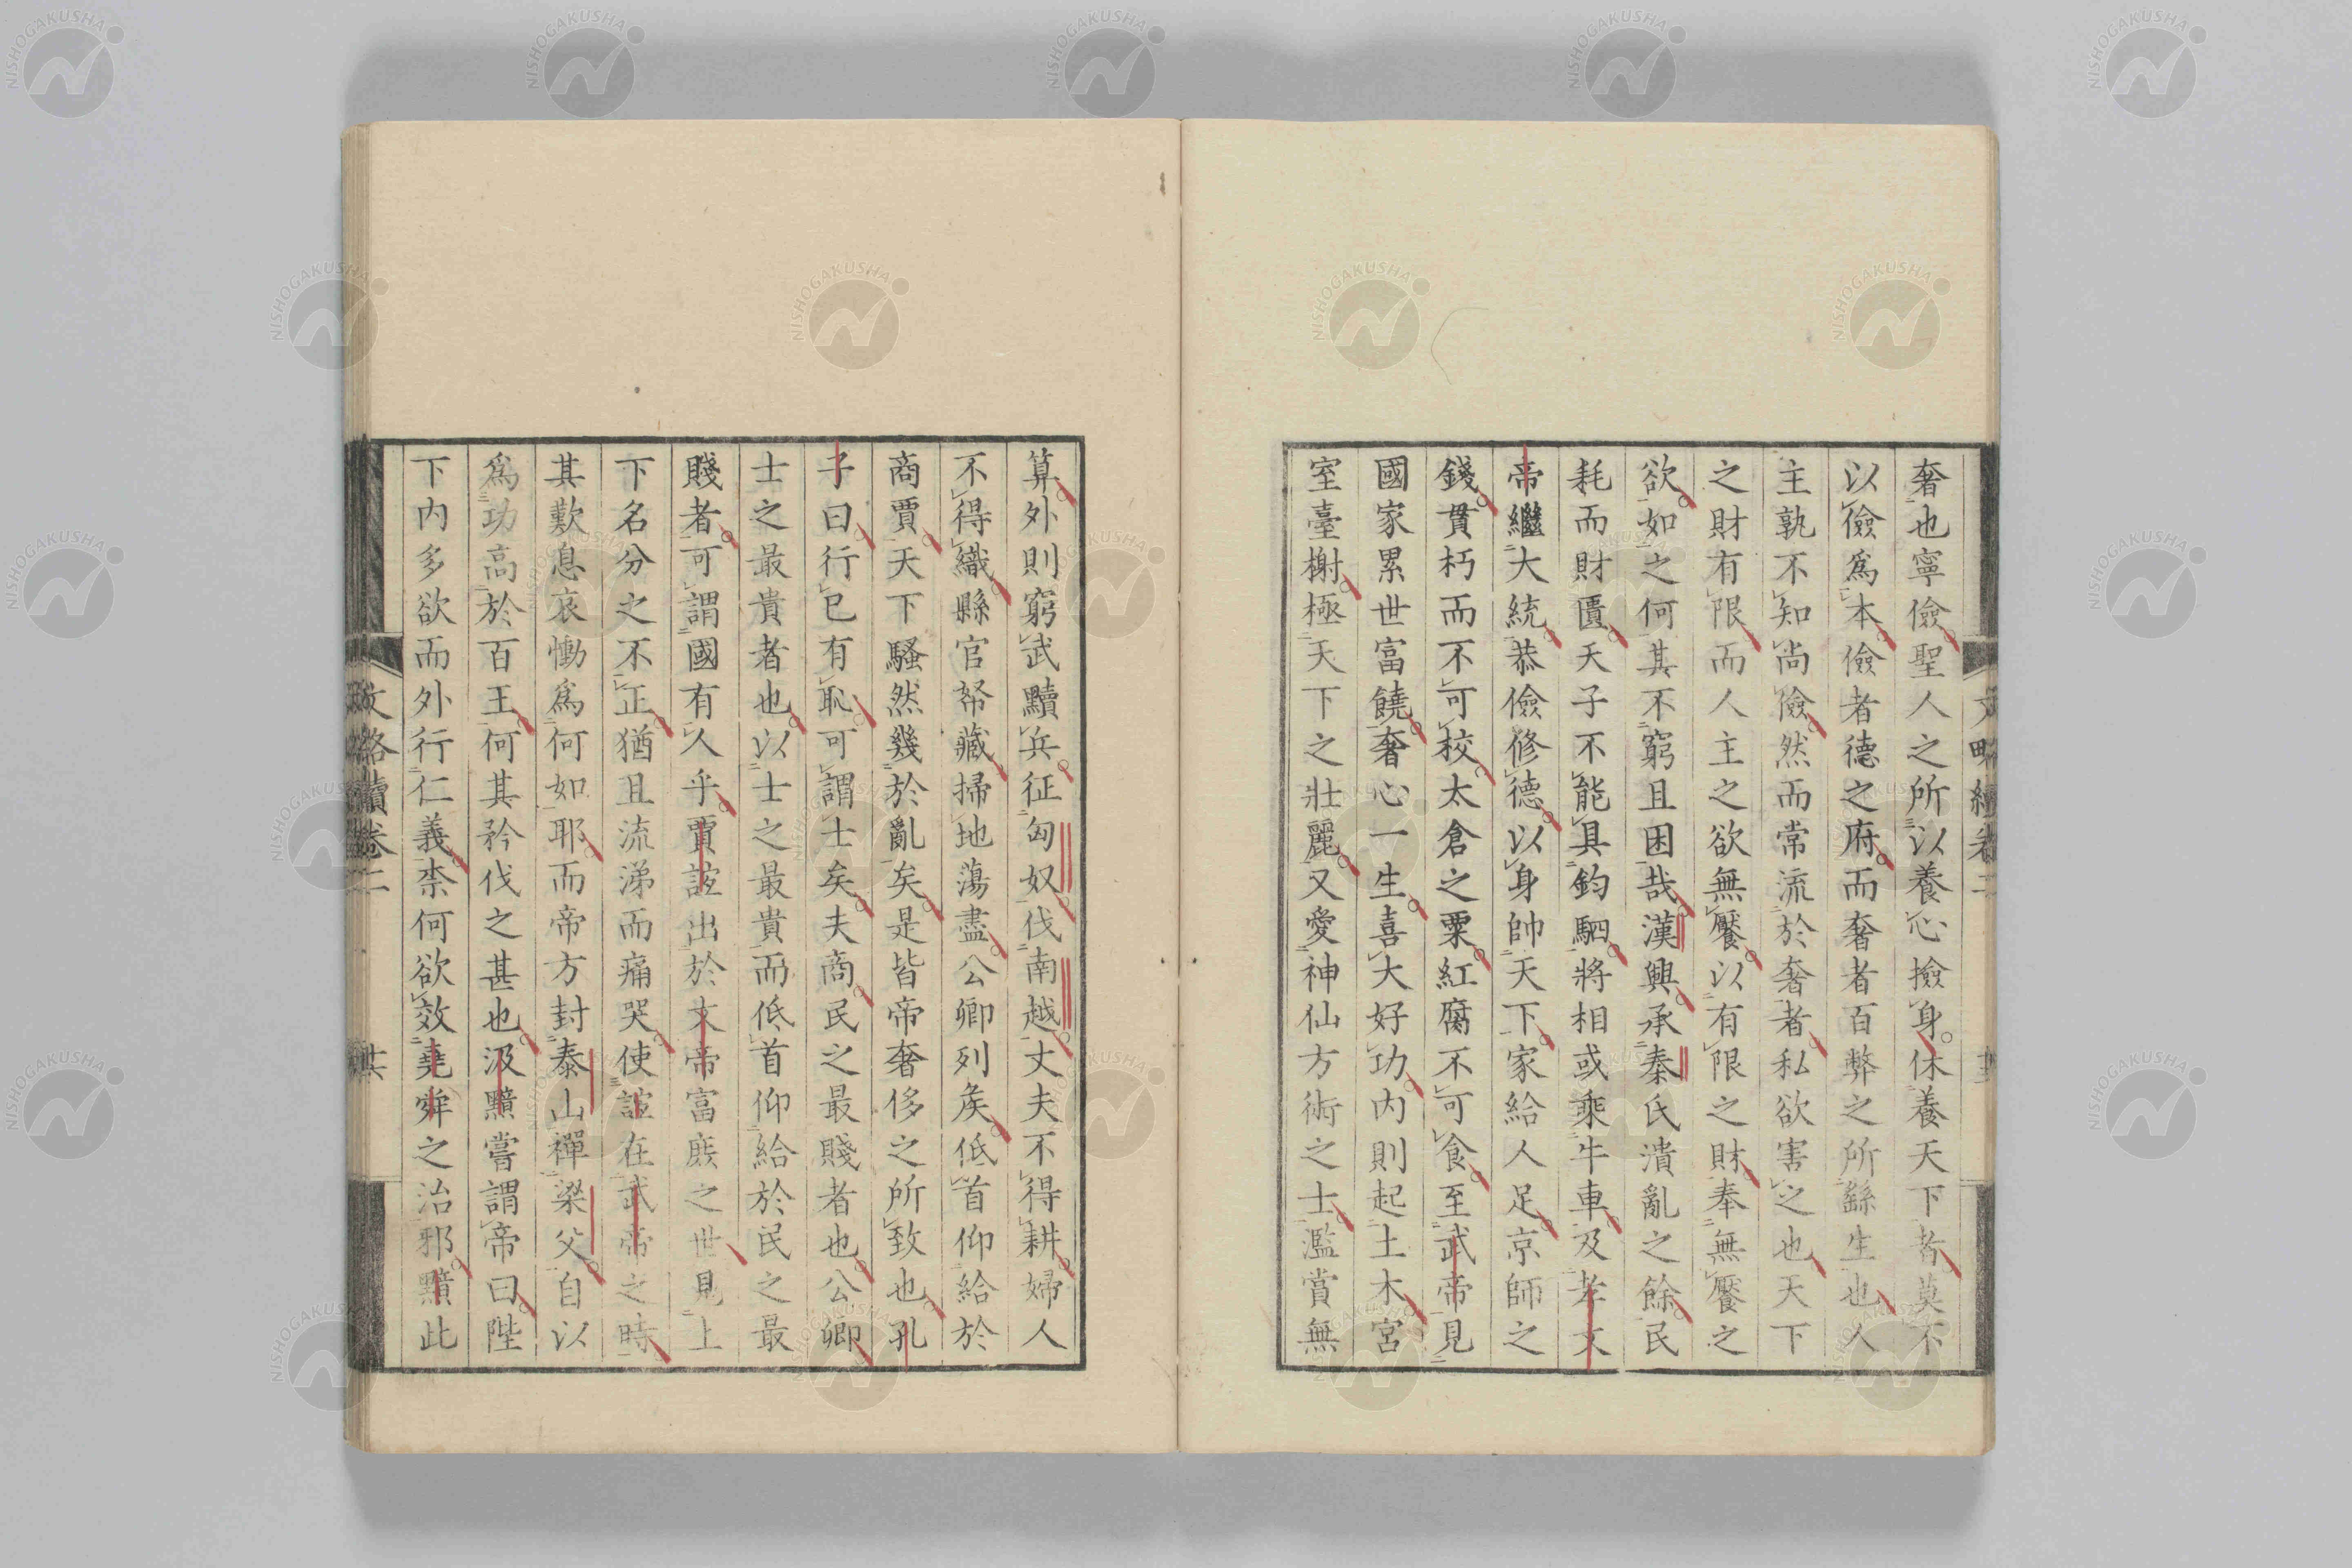 奢也寧儉聖人之所以養心撿身休養天下者莫不
以儉爲本儉者德之府而奢者百弊之所繇生也人
主孰不知尚儉然而常流於奢者私欲害之也天下
之財有限而人主之欲無饜以有限之財奉無饜之
欲如之何其不窮且困哉漢興承秦氏潰亂之餘民
耗而財匱天子不能具鈞駟將相或乘牛車及孝文
帝繼大統恭儉修德以身帥天下家給人足京師之
錢貫朽而不可校太倉之粟紅腐不可食至武帝見
國家累世富饒奢心一生喜大好功內則起土木宮
室臺榭極天下之壯麗又愛神仙方術之士濫賞無
算外則窮武黷兵征匈奴伐南越丈夫不得耕婦人
不得織縣官帑藏掃地蕩盡公卿列矦低首仰給於
商賈天下騷然幾於亂矣是皆帝奢侈之所致也孔
子曰行已有恥可謂士矣夫商民之最賤者也公卿
士之最貴者也以士之最貴而低首仰給於民之最
賤者可謂國有人乎賈誼出於文帝富庶之世見上
下名分之不正猶且流涕而痛哭使誼在武帝之時
其歎息哀慟爲何如耶而帝方封泰山禪梁父自以
爲功高於百王何其矜伐之甚也汲黯嘗謂帝曰陛
下內多欲而外行仁義柰何欲效堯舜之治邪黯此
文略續卷二
NISHOGAKUSHA